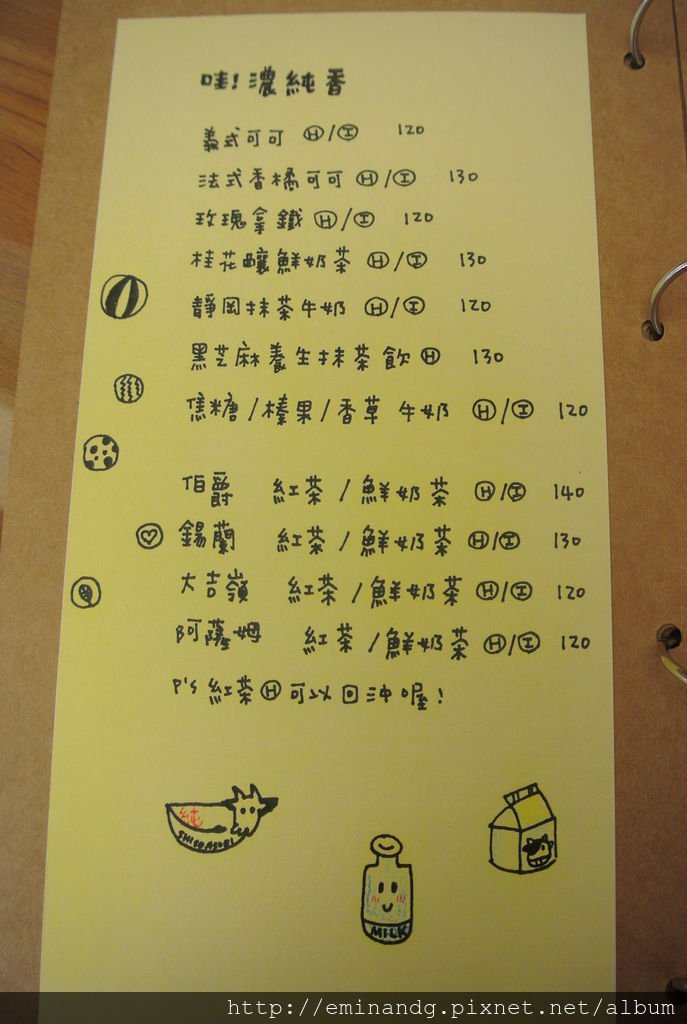 哇!濃純香
義式可可 Ⓗ/Ⓘ 120
法式香橘可可 Ⓗ/Ⓘ 130
玫瑰拿鐵 Ⓗ/Ⓘ 120
桂花釀鮮奶茶 Ⓗ/Ⓘ 130
靜岡抹茶牛奶 Ⓗ/Ⓘ 120
黑芝麻養生抹茶飲 Ⓗ 130
焦糖/榛果/香草 牛奶 Ⓗ/Ⓘ 120
伯爵 紅茶/鮮奶茶 Ⓗ/Ⓘ 140
錫蘭 紅茶/鮮奶茶 Ⓗ/Ⓘ 130
大吉嶺 紅茶/鮮奶茶 Ⓗ/Ⓘ 120
阿薩姆 紅茶/鮮奶茶 Ⓗ/Ⓘ 120
P's 紅茶Ⓗ可以回沖喔!
純
MILK
http://eminandg.pixnet.net/album